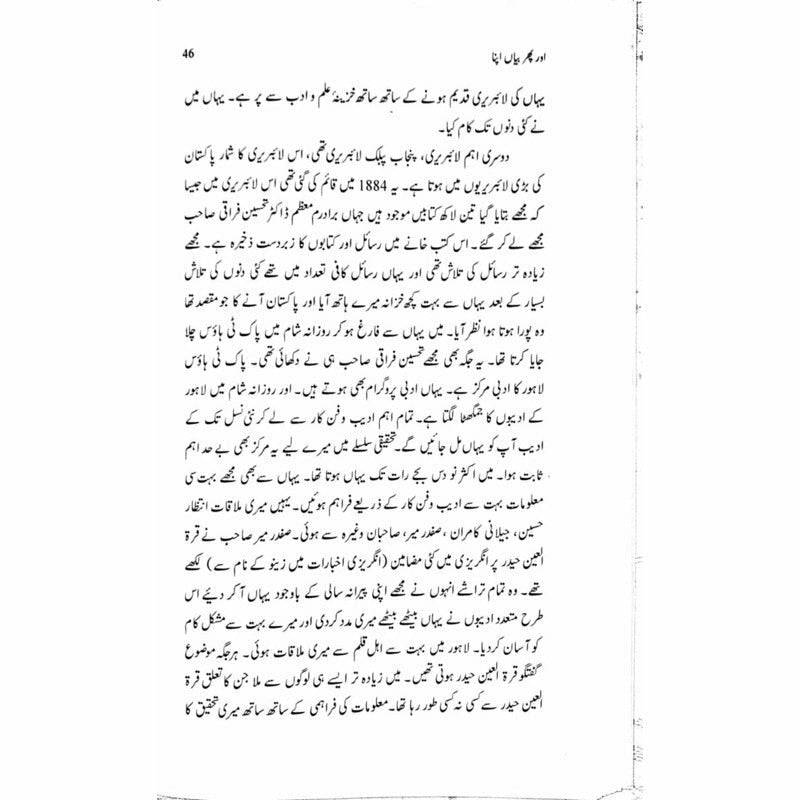 اور پھر بیاں اپنا
46
یہاں کی لائبریری قدیم ہونے کے ساتھ ساتھ خزینۂ علم و ادب سے پر ہے۔ یہاں میں
نے کئی دنوں تک کام کیا۔
دوسری اہم لائبریری، پنجاب پبلک لائبریری تھی، اس لائبریری کا شمار پاکستان
کی بڑی لائبریریوں میں ہوتا ہے۔ یہ 1884 میں قائم کی گئی تھی اس لائبریری میں جیسا
کہ مجھے بتایا گیا تین لاکھ کتابیں موجود ہیں جہاں برادرم معظم ڈاکٹر تحسین فراقی صاحب
مجھے لے کر گئے۔ اس کتب خانے میں رسائل اور کتابوں کا زبردست ذخیرہ ہے۔ مجھے
زیادہ تر رسائل کی تلاش تھی اور یہاں رسائل کافی تعداد میں تھے کئی دنوں کی تلاش
بسیار کے بعد یہاں سے بہت کچھ خزانہ میرے ہاتھ آیا اور پاکستان آنے کا جو مقصد تھا
وہ پورا ہوتا ہوا نظر آیا۔ میں یہاں سے فارغ ہو کر روزانہ شام میں پاک ٹی ہاؤس چلا
جایا کرتا تھا۔ یہ جگہ بھی مجھے تحسین فراقی صاحب ہی نے دکھائی تھی۔ پاک ٹی ہاؤس
لاہور کا ادبی مرکز ہے۔ یہاں ادبی پروگرام بھی ہوتے ہیں۔ اور روزانہ شام میں لاہور
کے ادیبوں کا جمگھٹا لگتا ہے۔ تمام اہم ادیب و فن کار سے لے کر نئی نسل تک کے
ادیب آپ کو یہاں مل جائیں گے۔ تحقیقی سلسلے میں میرے لیے یہ مرکز بھی بے حد اہم
ثابت ہوا۔ میں اکثر نو دس بجے رات تک یہاں ہوتا تھا۔ یہاں سے بھی مجھے بہت سی
معلومات بہت سے ادیب و فن کار کے ذریعے فراہم ہوئیں۔ یہیں میری ملاقات انتظار
حسین، جیلانی کامران، صفدر میر، صاحبان وغیرہ سے ہوئی۔ صفدر میر صاحب نے قرۃ
العین حیدر پر انگریزی میں کئی مضامین (انگریزی اخبارات میں زینو کے نام سے) لکھے
تھے۔ وہ تمام تراشے انہوں نے مجھے اپنی پیرانہ سالی کے باوجود یہاں آ کر دیئے اس
طرح متعدد ادیبوں نے یہاں بیٹھے بیٹھے میری مدد کردی اور میرے بہت سے مشکل کام
کو آسان کردیا۔ لاہور میں بہت سے اہل قلم سے میری ملاقات ہوئی۔ ہر جگہ موضوع
گفتگو قرۃ العین حیدر ہوتی تھیں۔ میں زیادہ تر ایسے ہی لوگوں سے ملا جن کا تعلق قرۃ
العین حیدر سے کسی نہ کسی طور رہا تھا۔ معلومات کی فراہمی کے ساتھ ساتھ میری تحقیق کا